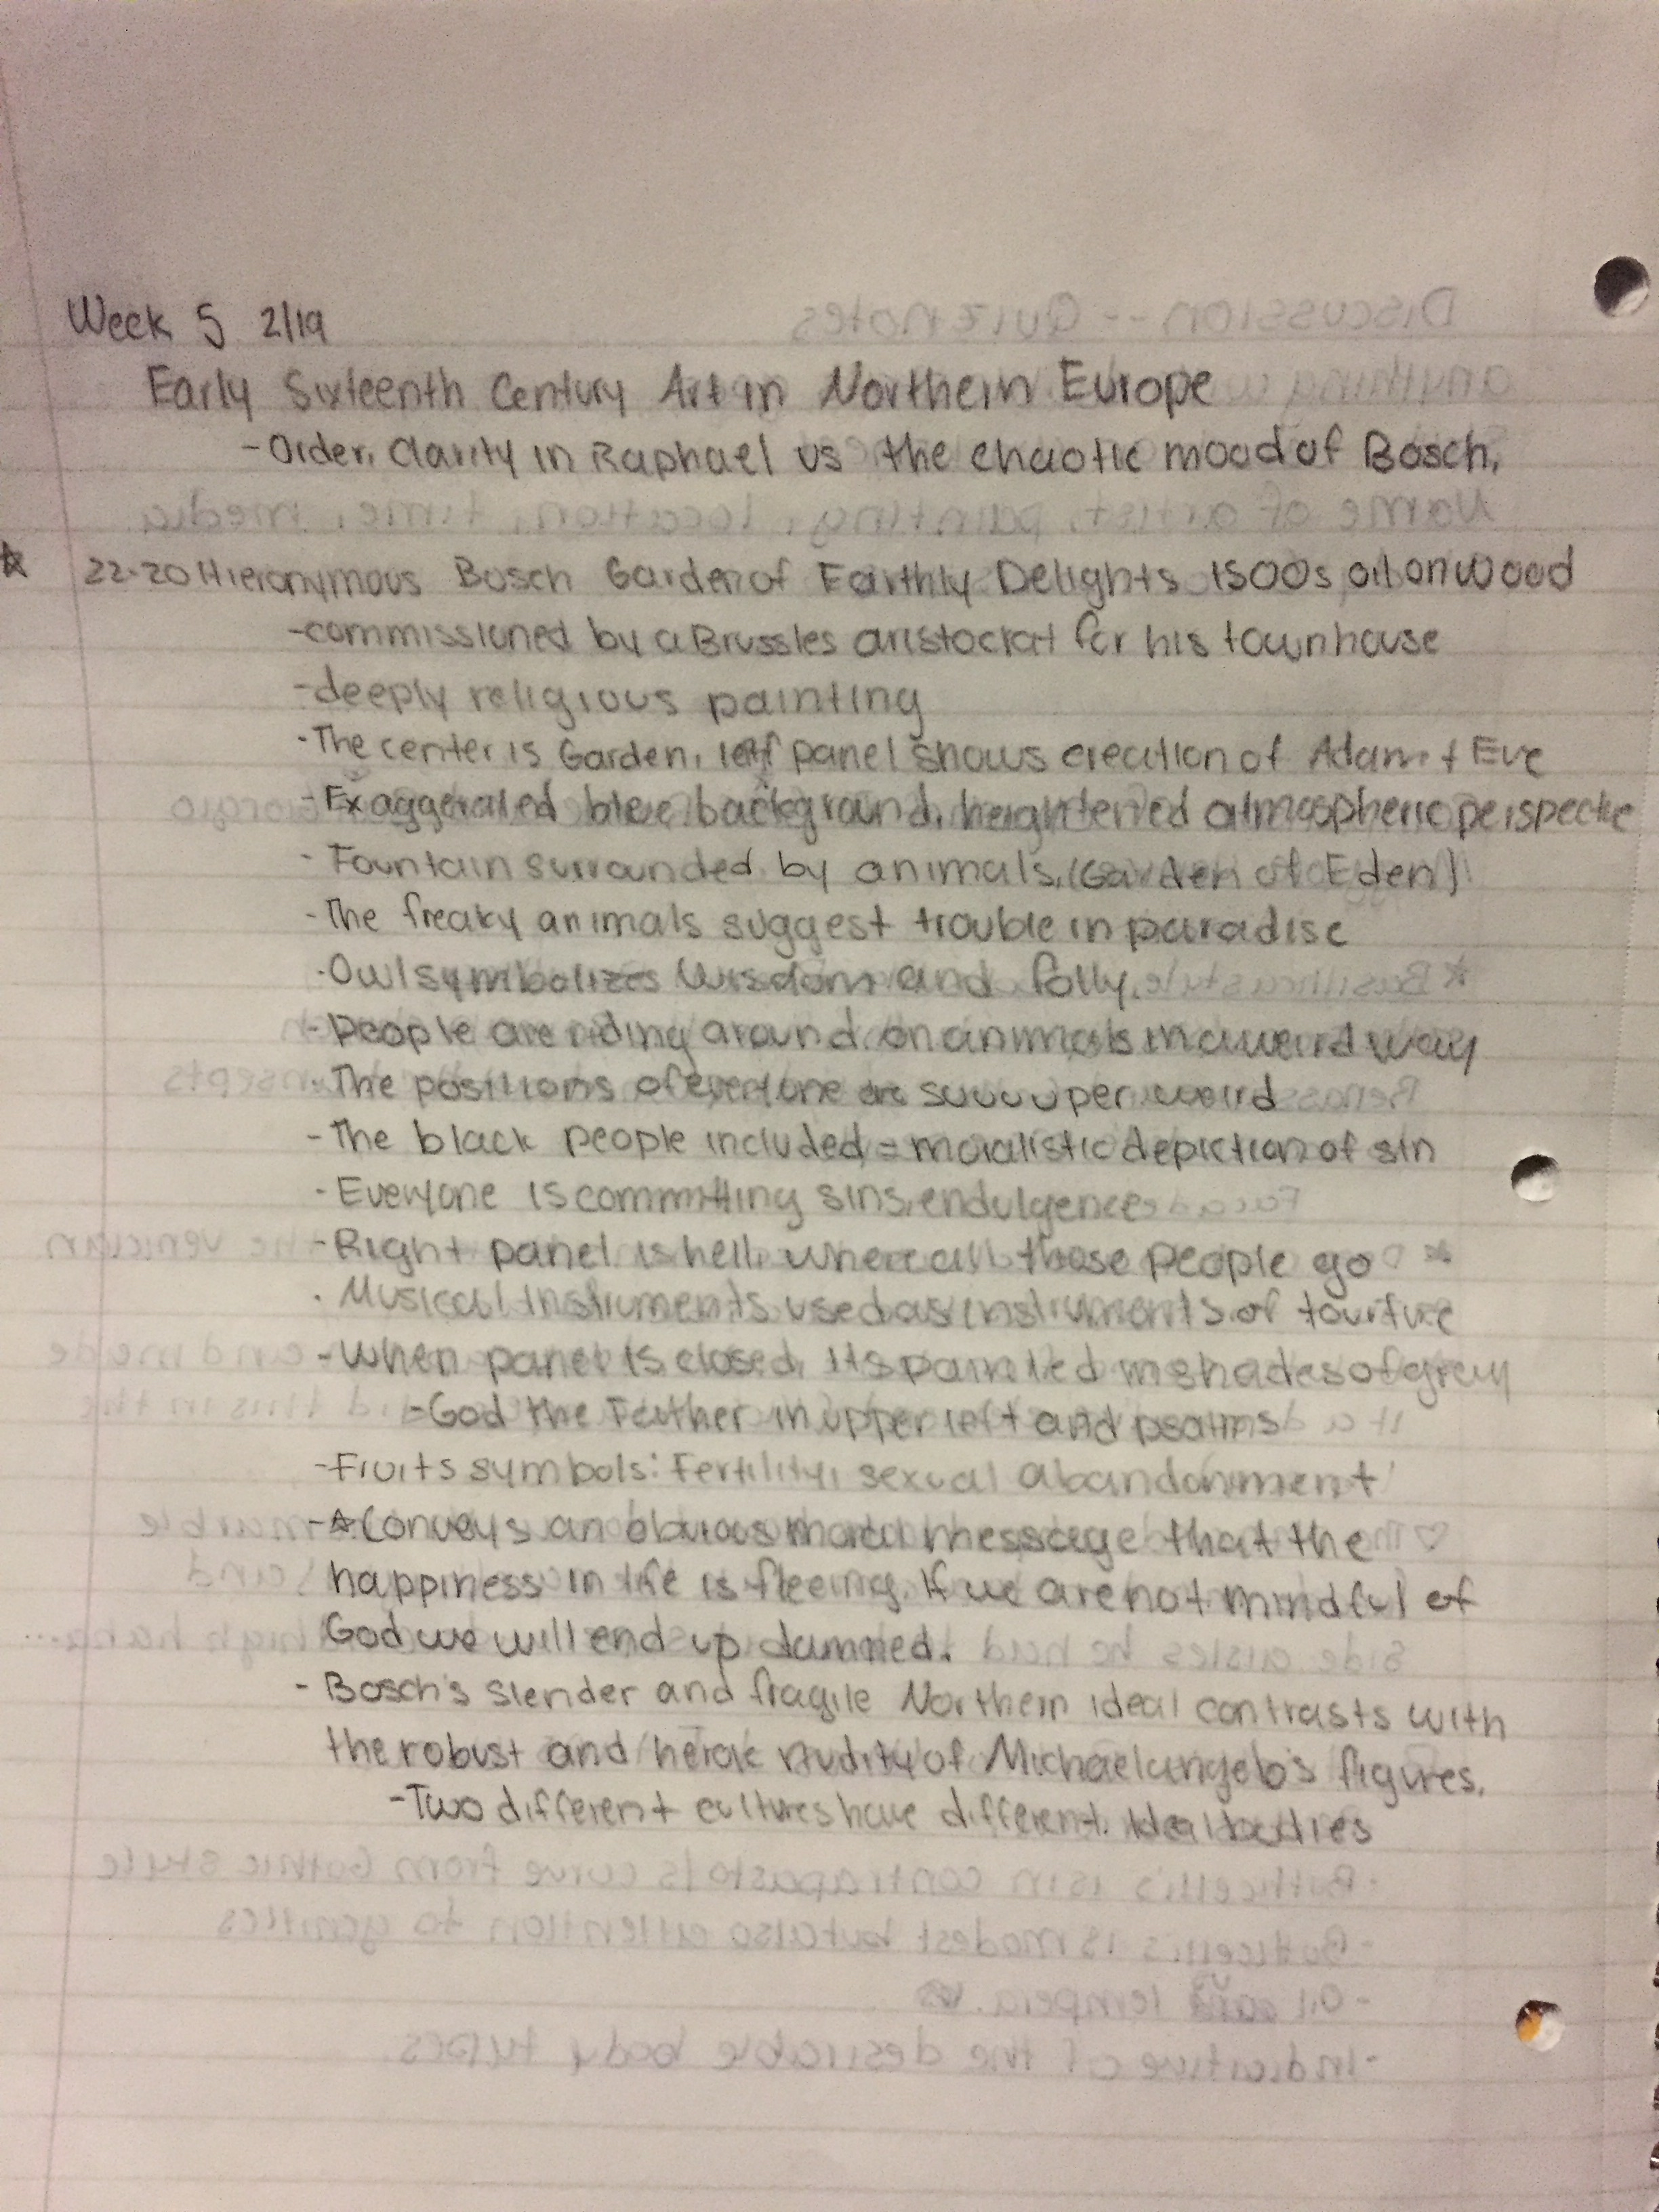 Week 5 2/19
Early Sixteenth Century Art in Northern Europe
- Order, Clarity in Raphael vs the chaotic mood of Bosch,
☆ 22-20 Hieronymous Bosch Garden of Earthly Delights 1500s, oil on wood
- commissioned by a Brussles aristockrat for his townhouse
- deeply religious painting
- The center is Garden, left panel shows creation of Adam + Eve
- Exaggerated blue background, heightened atmospheric perspective
- Fountain surrounded by animals, (Garden of Eden)
- The freaky animals suggest trouble in paradise
- Owl symbolizes wisdom and folly,
- People are riding around on animals in a weird way
- The positions of everyone are suuuuper weird
- The black people included = moralistic depiction of sin
- Everyone is committing sins, endulgence
- Right panel is hell, where all those people go
- Musical instruments used as instruments of tourture
- When panel is closed, its painted in shades of grey
- God the Father in upper left and psalms
- Fruits symbols: Fertility, sexual abandonment
- ☆ Conveys an obvious moral message that the
happiness in life is fleeing. If we are not mindful of
God we will end up damned.
- Bosch's slender and fragile Northern ideal contrasts with
the robust and heroic nudity of Michaelangelo's figures.
- Two different cultures have different ideal bodies